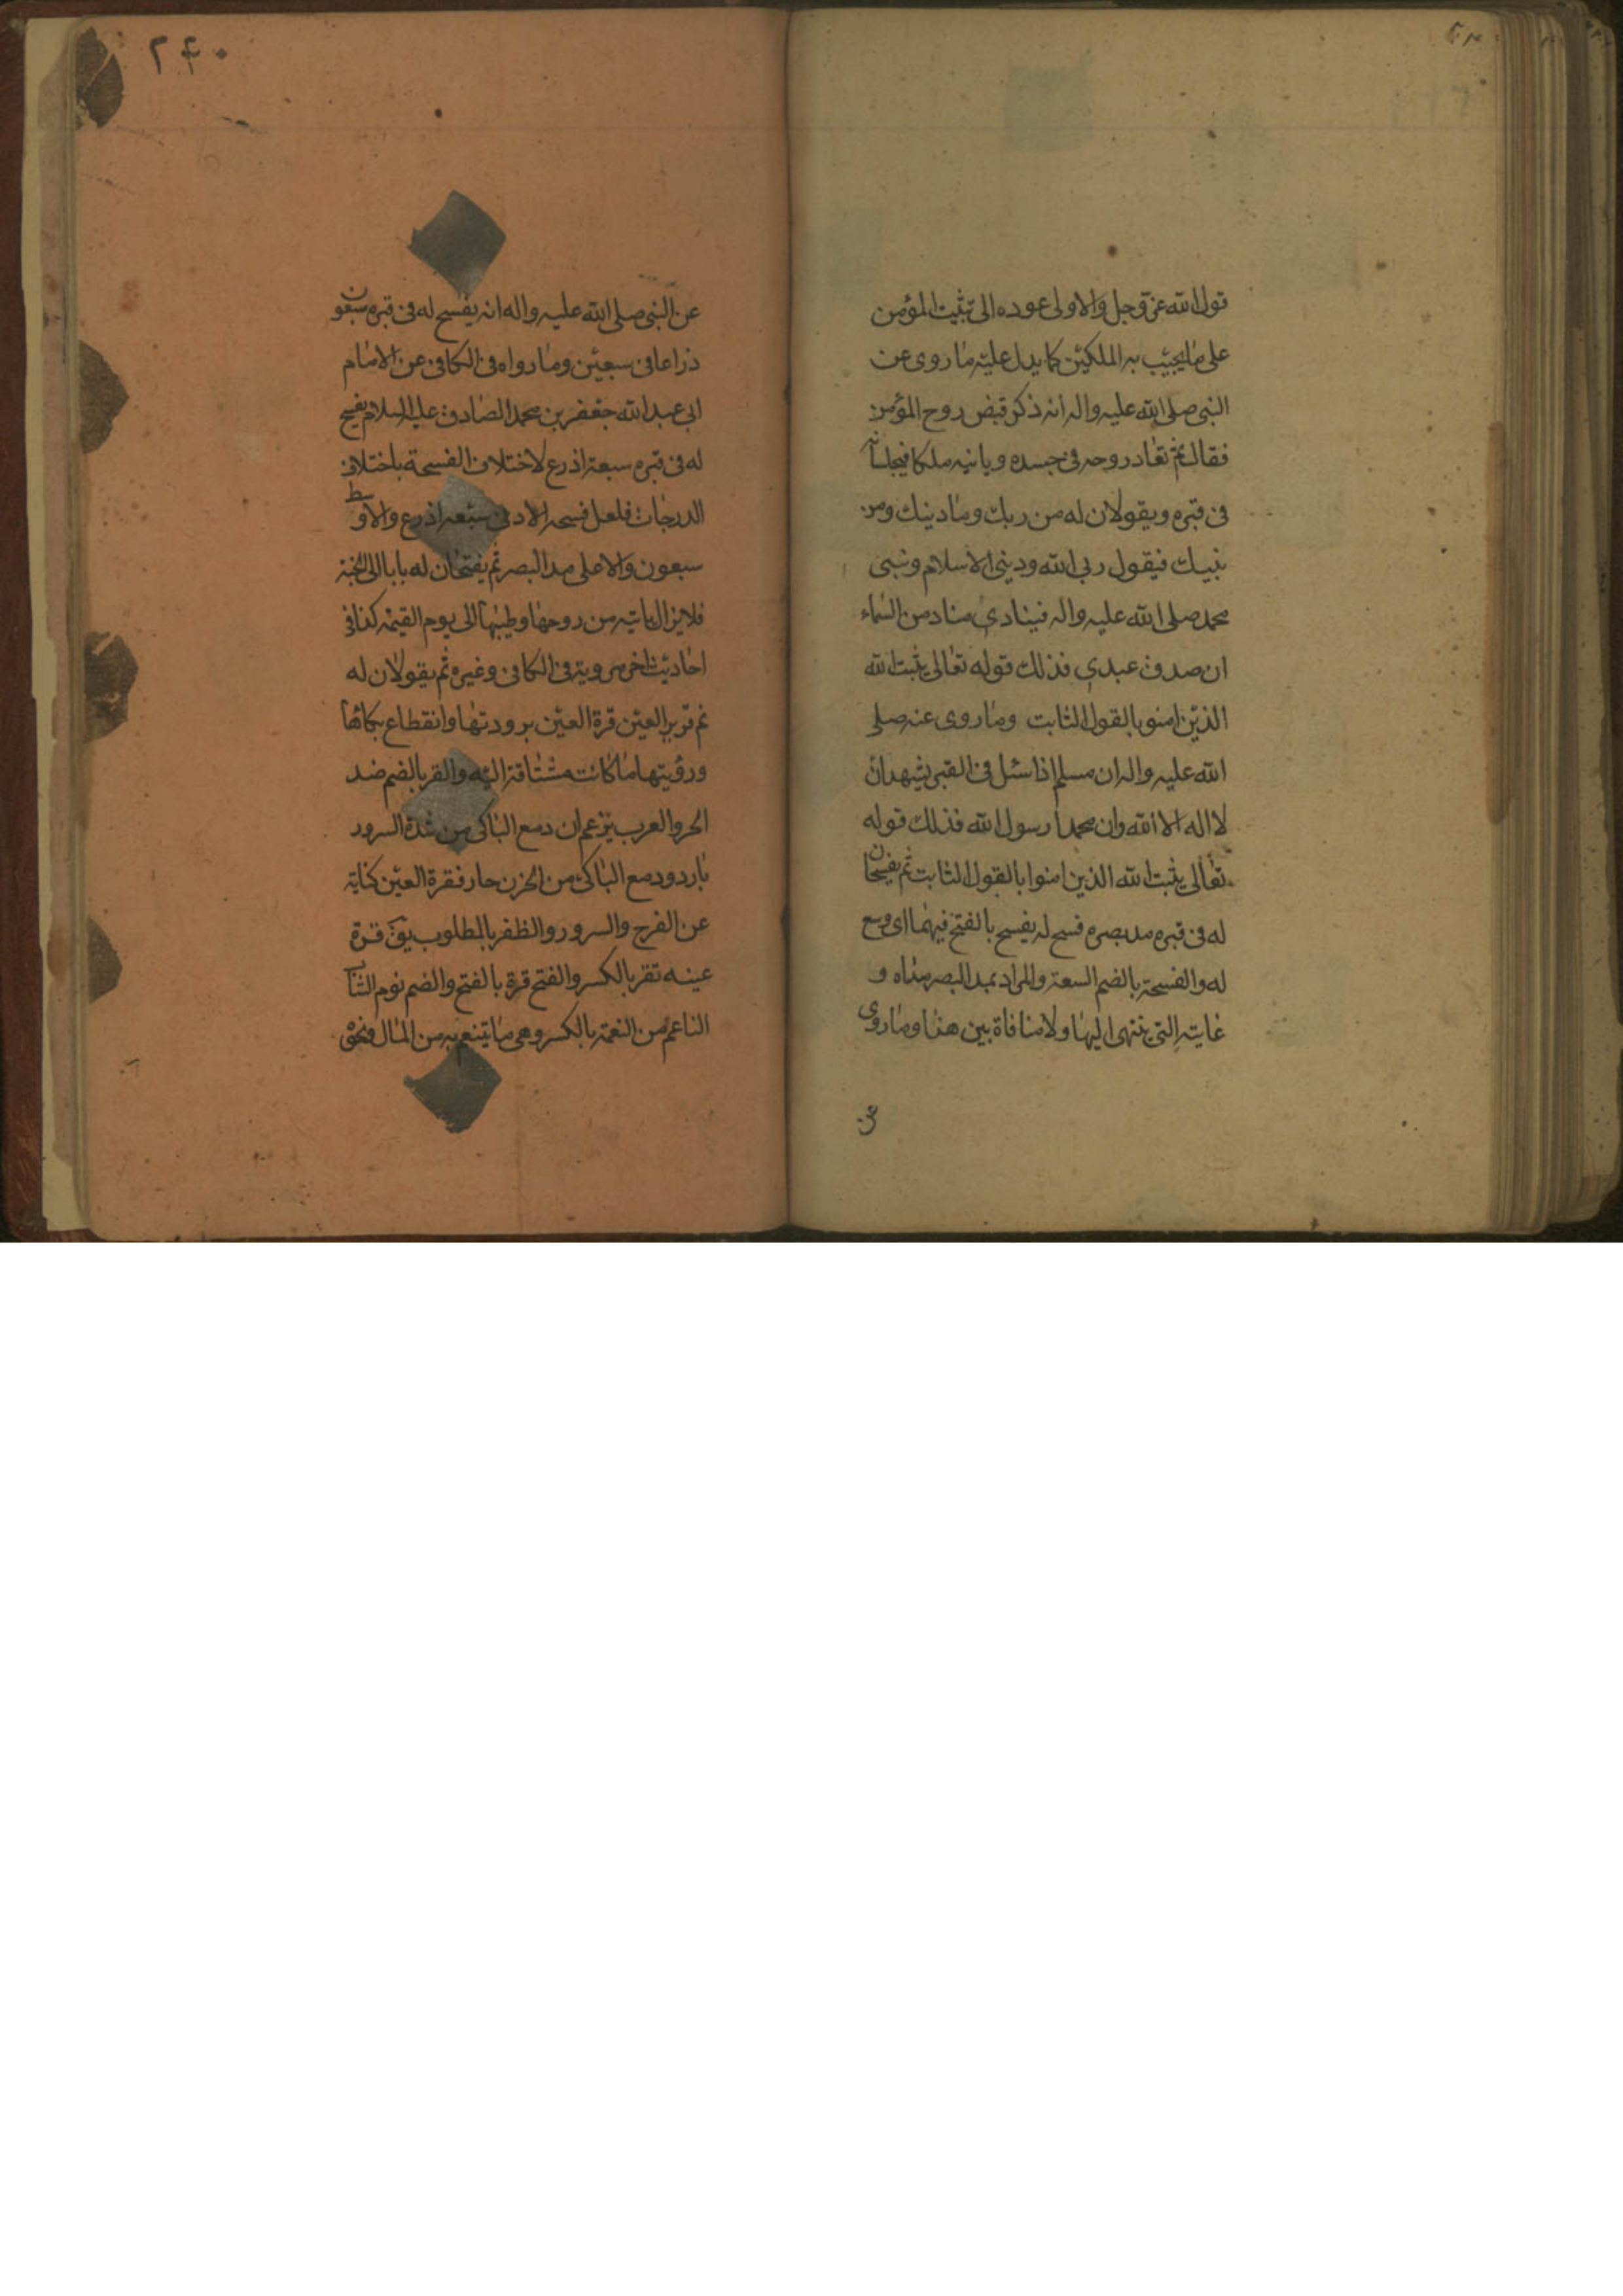 قول الله عز وجل والاولى عوده الى تثبيت المؤمن
على ما يجيب به الملكين كما يدل عليه ما روى عن
النبى صلى الله عليه واله انه ذكر قبض روح المؤمن
فقال ثم تعاد روحه فى جسده وياتيه ملكا فيجلسانه
فى قبره ويقولان له من ربك وما دينك ومن
نبيك فيقول ربى الله ودينى الاسلام ونبى
محمد صلى الله عليه واله فينادى مناد من السماء
ان صدق عبدى فذلك قوله تعالى يثبت الله
الذين امنو بالقول الثابت وما روى عنه صلى
الله عليه واله ان مسلم اذا سئل فى القبر يشهد ان
لا اله الا الله وان محمدا رسول الله فذلك قوله
تعالى يثبت الله الذين امنوا بالقول الثابت ثم يفسحان
له فى قبره مد بصره فسح له يفسح بالفتح فيهما اى وسع
له والفسحة بالضم السعة والمراد بمد البصر مداه و
غايته التى ينتهى اليها ولا منافاة بين هذا وما روى
عن
٢۴٠
عن النبى صلى الله عليه واله انه يفسح له فى قبره سبعون
ذراعا فى سبعين وما رواه فى الكافى عن الامام
ابى عبد الله جعفر بن محمد الصادق عليه السلام يفسح
له فى قبره سبعة اذرع لاختلاف الفسحة باختلاف
الدرجات فلعل فسحه الادنى سبعه اذرع والاوسط
سبعون والاعلى مد البصر ثم يفتحان له بابا الى الجنة
فلا يزال ياتيه من روحها وطيبها الى يوم القيمة كذا فى
احاديث اخر مروية فى الكافى وغيره ثم يقولان له
نم قرير العين قرة العين برودتها وانقطاع بكائها
ورؤيتها ما كانت مشتاقة اليه والقر بالضم ضد
الحر والعرب يزعم ان دمع الباكى من شدة السرور
بارد ودمع الباكى من الحزن حار فقرة العين كناية
عن الفرح والسرور والظفر بالمطلوب يق قرة
عينه تقر بالكسر والفتح قرة بالفتح والضم نوم الشاب
الناعم من النعمة بالكسر وهى ما يتنعم به من المال ونحوه